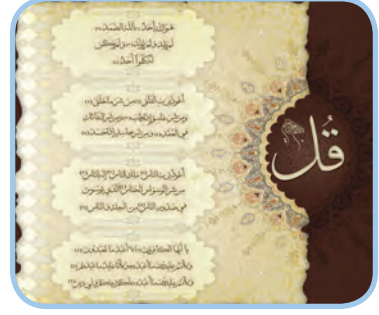 قُل
هو الله أحد الله الصمد
لم يلد ولم يولد ولم يكن
له كفوا أحد
أعوذ برب الفلق من شر ما خلق
ومن شر غاسق إذا وقب ومن شر النفاثات
في العقد ومن شر حاسد إذا حسد
أعوذ برب الناس ملك الناس إله الناس
من شر الوسواس الخناس الذي يوسوس
في صدور الناس من الجنة و الناس
يا أيها الكافرون لا أعبد ما تعبدون
ولا أنتم عابدون ما أعبد ولا أنا عابد ما عبدتم
ولا أنتم عابدون ما أعبد لكم دينكم ولي دين